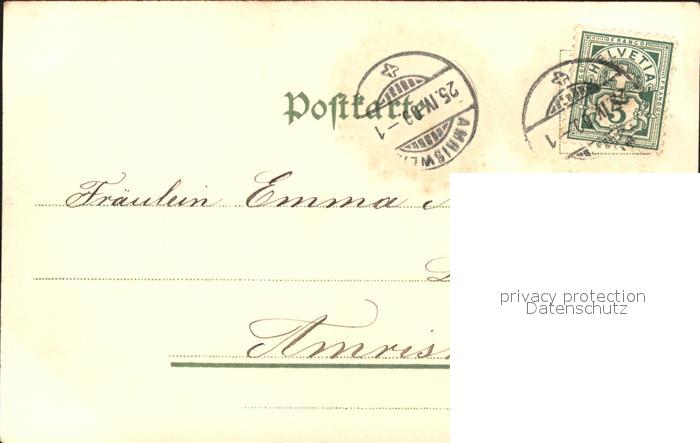 Postkarte
25.IV.99 – 1
AMRISWIL
FRANCO
HELVETIA
5
Fräulein Emma
privacy protection
Datenschutz